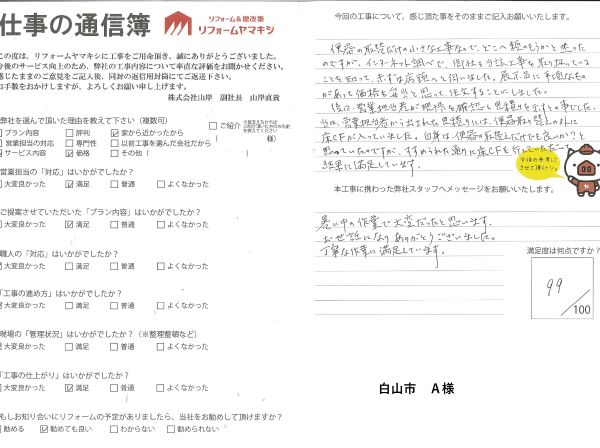 仕事の通信簿
リフォーム&増改築
リフォームヤマキシ
この度は、リフォームヤマキシに工事をご用命頂き、誠にありがとうございました。
今後のサービス向上のため、弊社の工事内容について率直な評価をお聞かせください。
感じたままのご意見をご記入後、同封の返信用封筒にてご返送下さい。
お手数をおかけしますが、よろしくお願い申し上げます。
株式会社山岸 副社長 山岸直貴
弊社を選んで頂いた理由を教えて下さい(複数可)
プラン内容 評判 家から近かったから
営業担当の対応 専門性 以前工事を選んだ会社だから
サービス内容 価格 その他( )
ご紹介
( 様)
営業担当の「対応」はいかがでしたか?
大変良かった 満足 普通 よくなかった
ご提案させていただいた「プラン内容」はいかがでしたか?
大変良かった 満足 普通 よくなかった
職人の「対応」はいかがでしたか?
大変良かった 満足 普通 よくなかった
「工事の進め方」はいかがでしたか?
大変良かった 満足 普通 よくなかった
現場の「管理状況」はいかがでしたか?(※整理整頓など)
大変良かった 満足 普通 よくなかった
「工事の仕上がり」はいかがでしたか?
大変良かった 満足 普通 よくなかった
もしお知り合いにリフォームの予定がありましたら、当社をお勧めして頂けますか?
勧める 勧めても良い わからない 勧められない
今回の工事について、感じ頂た事をそのままご記入お願いいたします。
便器の取替だけの小さな工事なので、どこへ頼もうかと思った
のですが、インターネットで調べて、御社も当該工事を取り扱っている
ことを知って、まずは店頭へと伺いました。展示品に手頃なもの
があって価格も妥当と思って、注文することにしました。
後は、営業担当者が現場を確認し見積りを出すとの事でした。
結果に満足しています。
今後の参考に
させて頂くヤ〜
本工事に携わった弊社スタッフへメッセージをお願いいたします。
暑い中の作業で大変だったと思います。
お世話になりありがとうございました。
丁寧な作業に満足しています。
満足度は何点ですか?
99
/100
白山市 A様